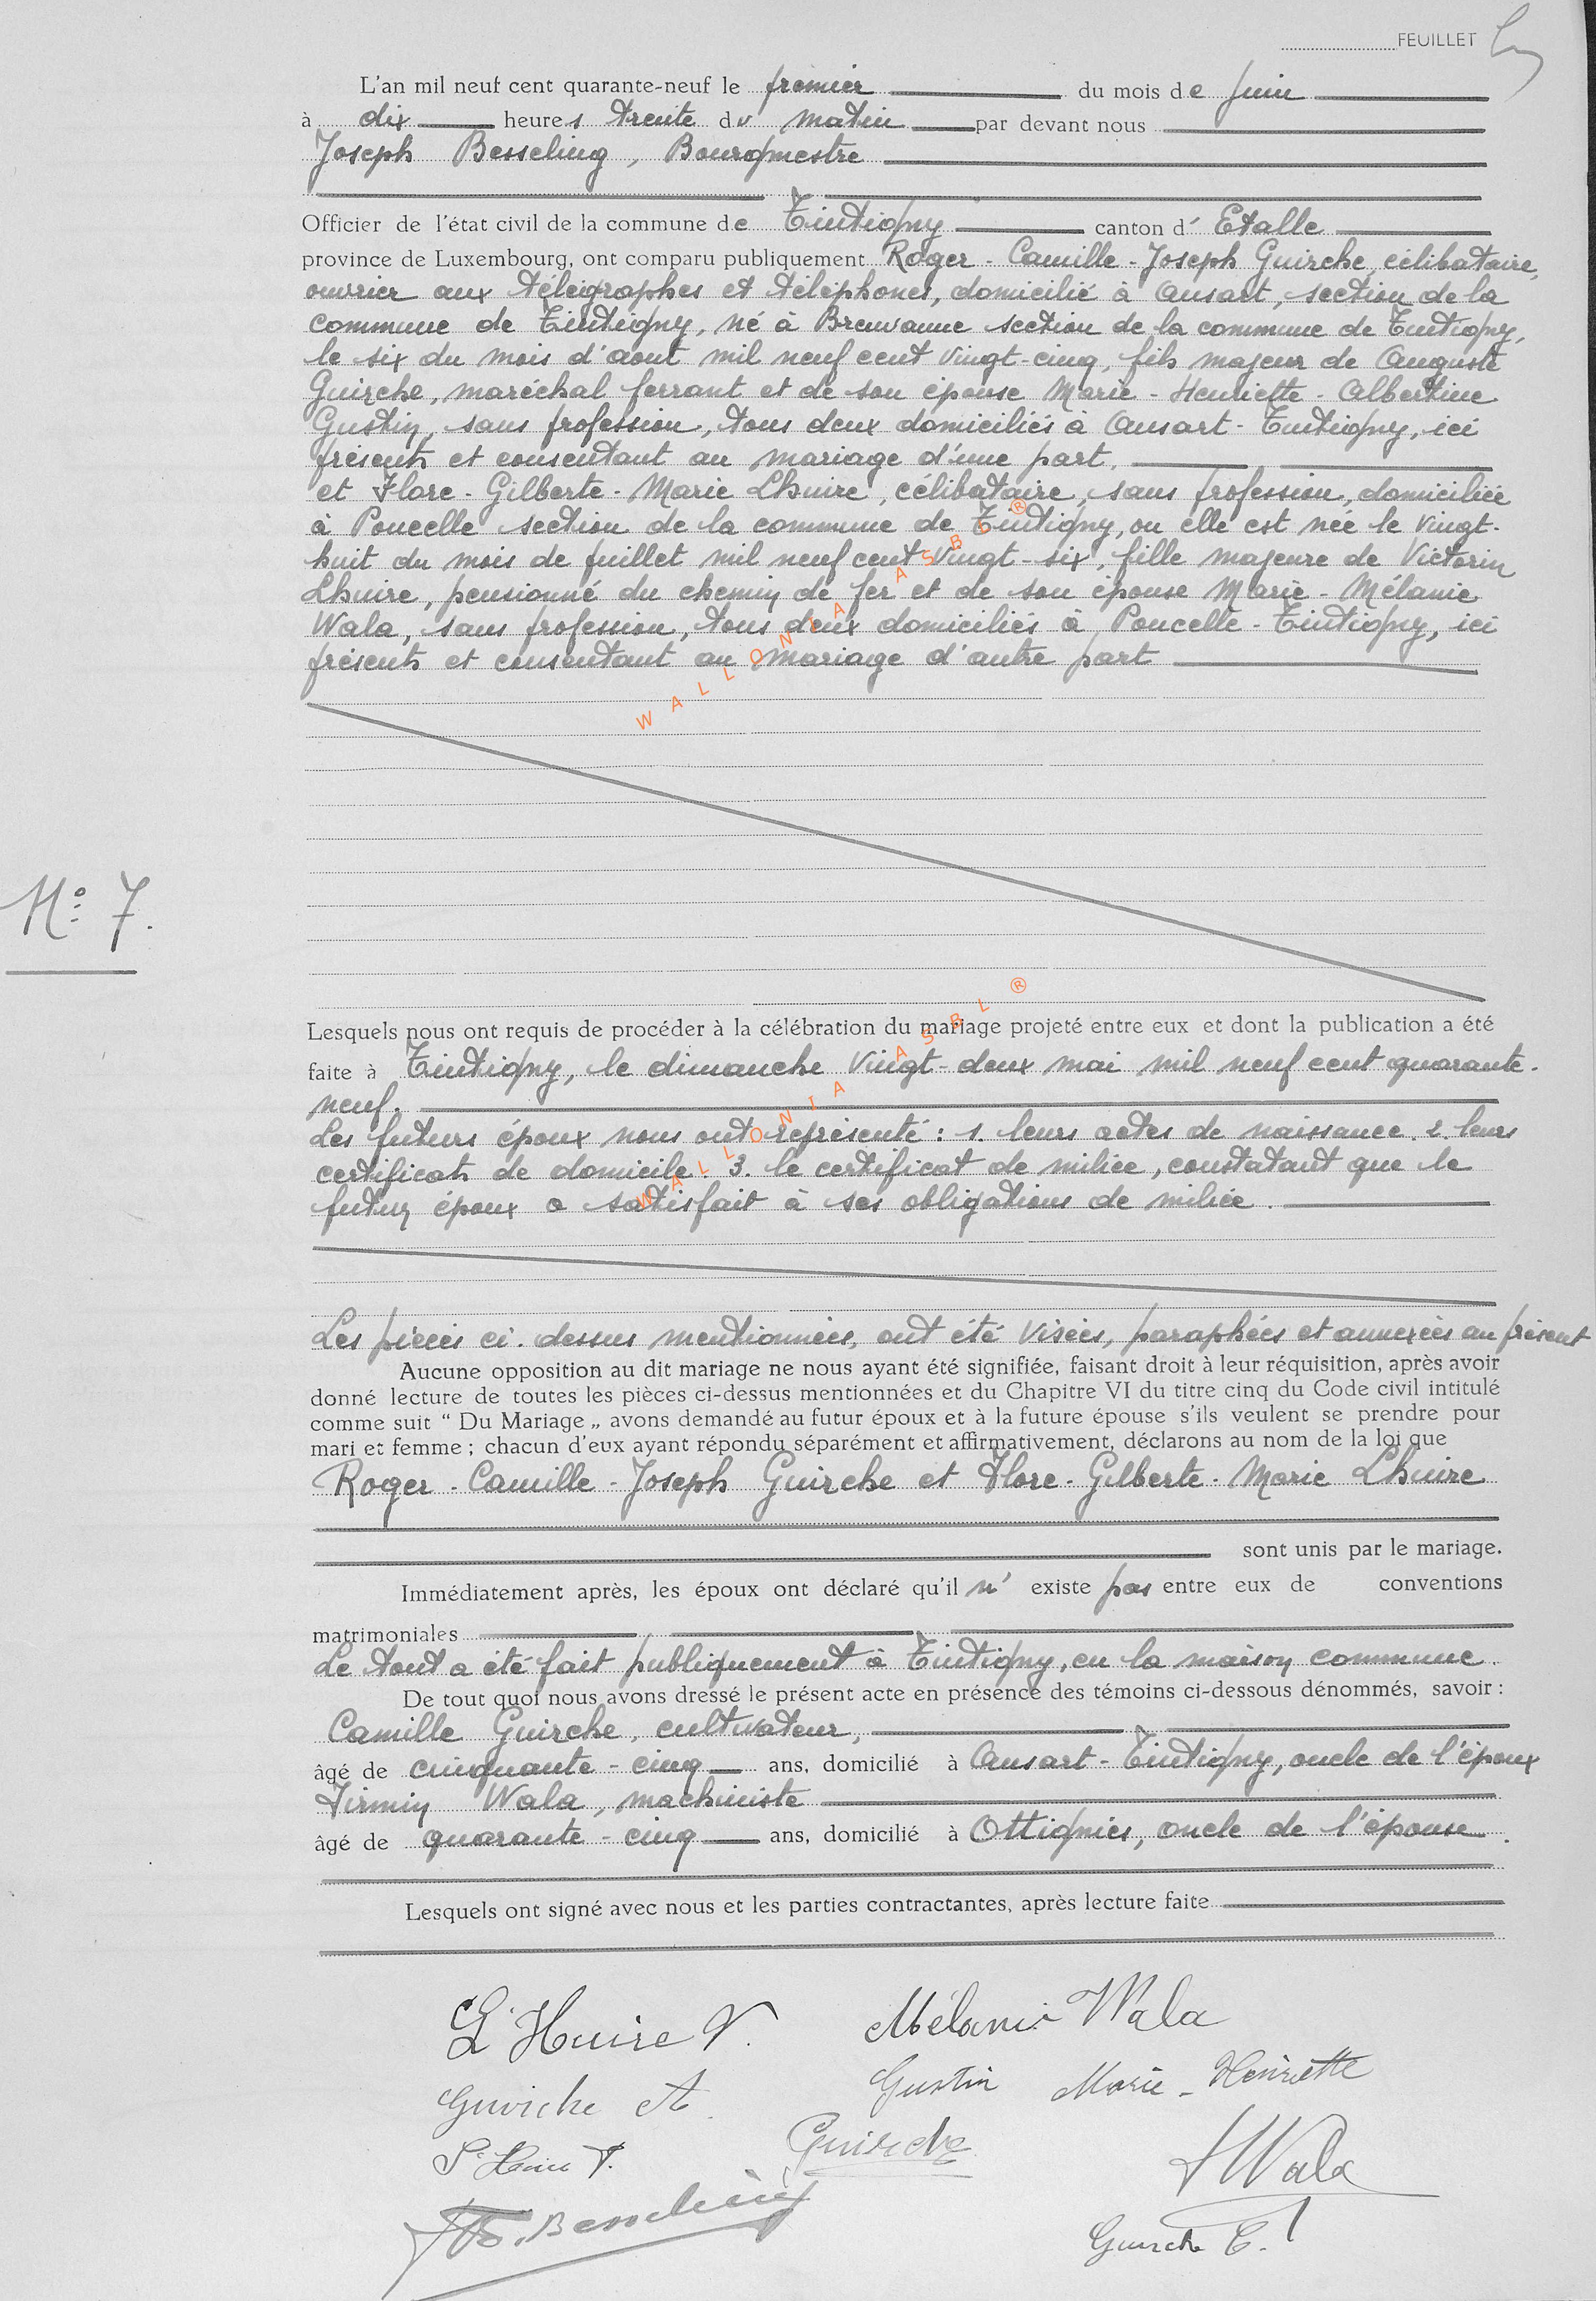 FEUILLET
L'an mil neuf cent quarante-neuf le premier du mois de juin
à dix heures trente du matin par devant nous
Joseph Besseling, Bourgmestre
Officier de l'état civil de la commune de Tintigny canton d' Etalle
province de Luxembourg, ont comparu publiquement Roger - Camille - Joseph Guirche, célibataire,
ouvrier aux télégraphes et téléphones, domicilié à Ansart, section de la
commune de Tintigny, né à Breuvanne section de la commune de Tintigny,
le six du mois d'aout mil neuf cent vingt-cinq, fils majeur de Auguste
Guirche, maréchal ferrant et de son épouse Marie - Henriette - Albertine
Gustin, sans profession, tous deux domiciliés à Ansart - Tintigny, ici
présents et consentant au mariage d'une part.
et Flore - Gilberte - Marie Lhuire, célibataire, sans profession, domiciliée
à Poncelle section de la commune de Tintigny, ou elle est née le vingt-
huit du mois de juillet mil neuf cent vingt-six, fille majeure de Victorin
Lhuire, pensionné du chemin de fer et de son épouse Marie - Mélanie
Wala, sans profession, tous deux domiciliés à Poncelle - Tintigny, ici
présents et consentant au mariage d'autre part
WALLONIA ASBL ®
N° 7.
Lesquels nous ont requis de procéder à la célébration du mariage projeté entre eux et dont la publication a été
faite à Tintigny, le dimanche vingt-deux mai mil neuf cent quarante-
neuf.
Les futurs époux nous ont représenté : 1. leurs actes de naissance. 2. leurs
certificats de domicile. 3. le certificat de milice, constatant que le
futur époux a satisfait à ses obligations de milice.
WALLONIA ASBL ®
Les pièces ci-dessus mentionnées, ont été visées, paraphées et annexées au présent
Aucune opposition au dit mariage ne nous ayant été signifiée, faisant droit à leur réquisition, après avoir
donné lecture de toutes les pièces ci-dessus mentionnées et du Chapitre VI du titre cinq du Code civil intitulé
comme suit “ Du Mariage „ avons demandé au futur époux et à la future épouse s'ils veulent se prendre pour
mari et femme ; chacun d'eux ayant répondu séparément et affirmativement, déclarons au nom de la loi que
Roger - Camille - Joseph Guirche et Flore - Gilberte - Marie Lhuire
sont unis par le mariage.
Immédiatement après, les époux ont déclaré qu'il n' existe pas entre eux de conventions
matrimoniales
Le tout a été fait publiquement à Tintigny, en la maison commune.
De tout quoi nous avons dressé le présent acte en présence des témoins ci-dessous dénommés, savoir :
Camille Guirche, cultivateur,
âgé de cinquante-cinq ans, domicilié à Ansart - Tintigny, oncle de l'époux
Firmin Wala, machiniste
âgé de quarante-cinq ans, domicilié à Ottignies, oncle de l'épouse.
Lesquels ont signé avec nous et les parties contractantes, après lecture faite
L'Huire V. Mélanie Wala
Guirche A. Gustin Marie - Henriette
L'Huire F. Guirche
F Wala
Besseling
Guirche C.